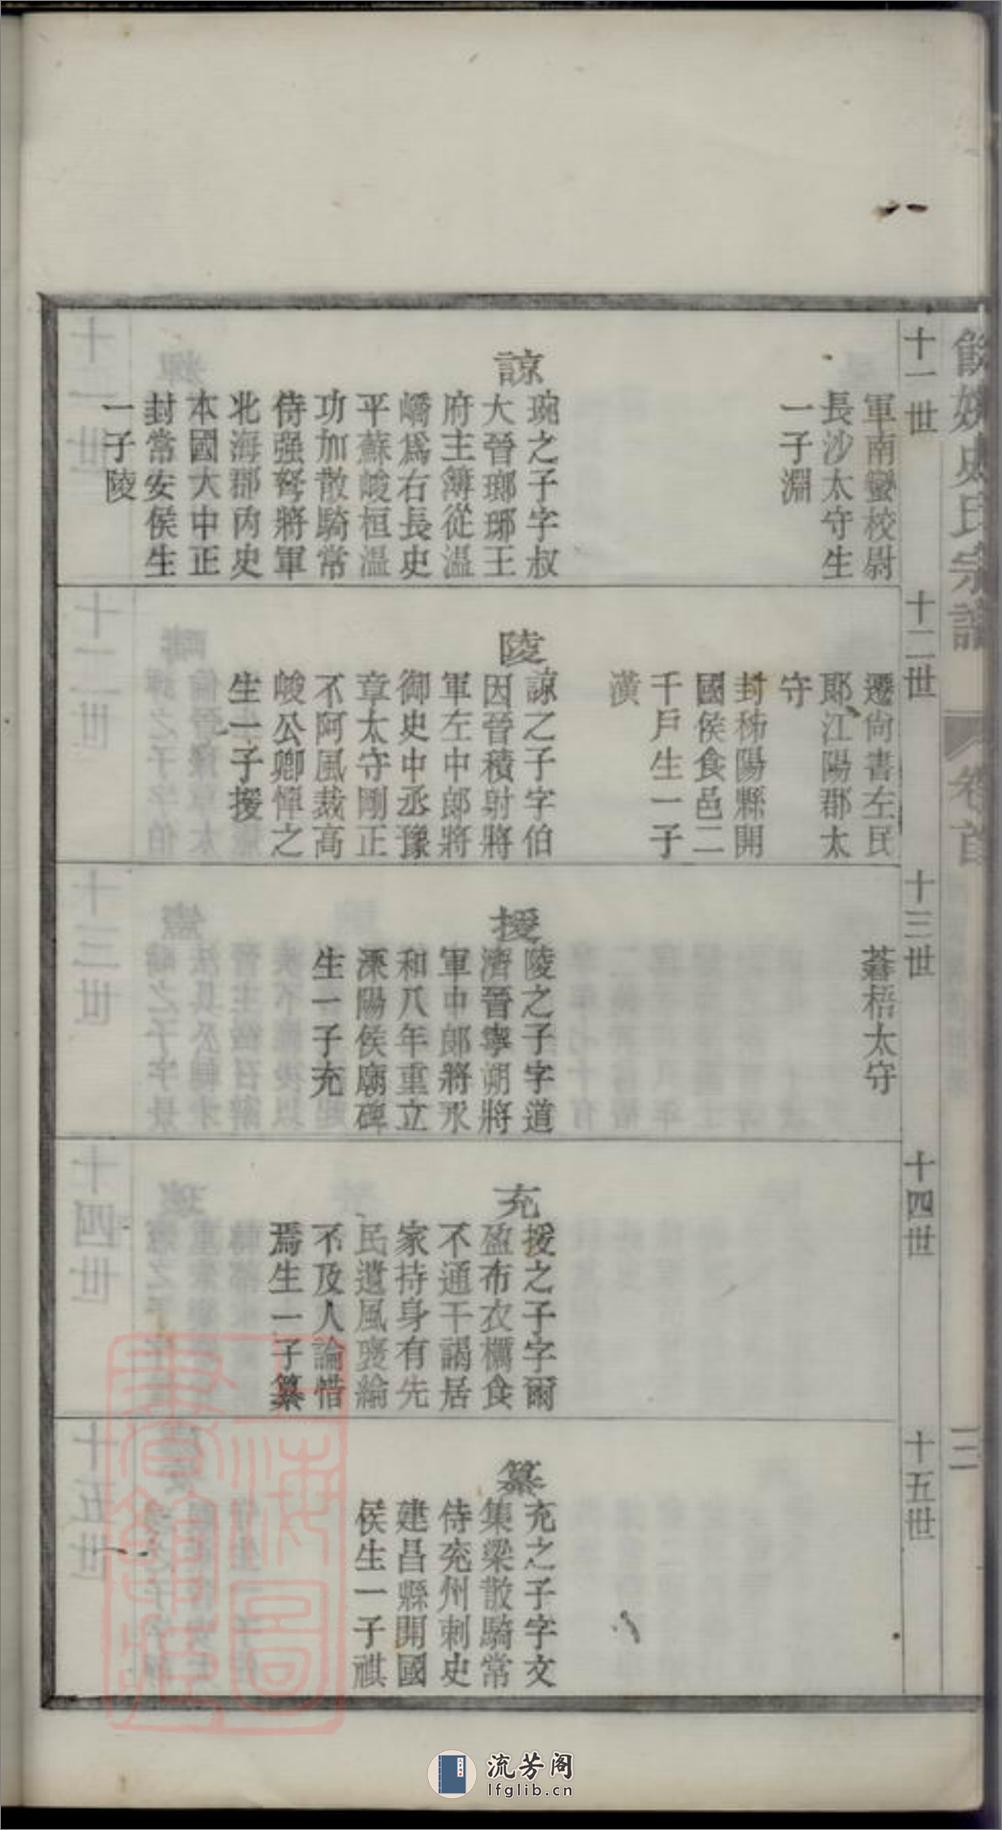 餘姚史氏宗譜
卷首
三
十一世
軍南蠻校尉
長沙太守生
一子淵
諒
琬之子字叔
大晉瑯琊王
府主簿從溫
嶠爲右長史
平蘇峻桓溫
功加散騎常
侍强弩將軍
北海郡內史
本國大中正
封常安侯生
一子陵
十二世
遷尙書左民
郞江陽郡太
守
封秭陽縣開
國侯食邑二
千戶生一子
潢
陵
諒之子字伯
因晉積射將
軍左中郞將
御史中丞豫
章太守剛正
不阿風裁高
峻公卿憚之
生一子援
十三世
蒼梧太守
援
陵之子字道
濟晉寧朔將
軍中郞將永
和八年重立
溧陽侯廟碑
生一子充
十四世
充
援之子字爾
盈布衣櫔食
不通干謁居
家持身有先
民遺風褒綸
不及人論惜
焉生一子纂
十五世
纂
充之子字文
集梁散騎常
侍兖州刺史
建昌縣開國
侯生一子祺
流芳阁
lfglib.cn